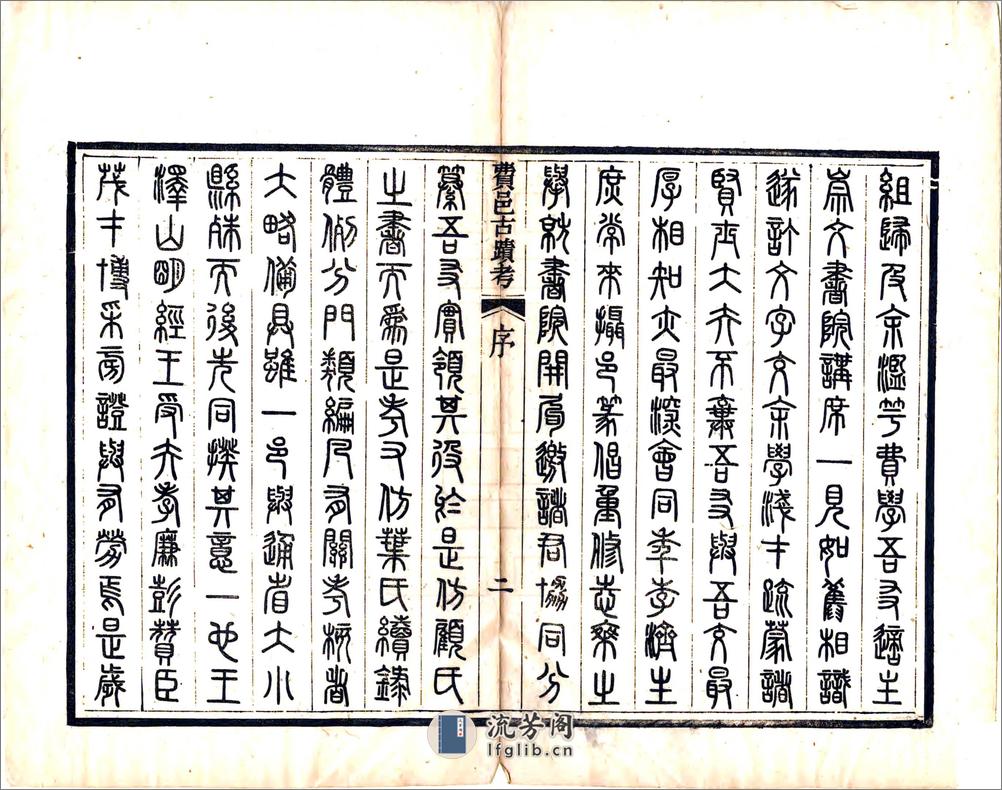 組歸及余濫竽費學吾友適主
崇文書院講席一見如舊相識
遂訂文字交余學淺才疏蒙諸
賢士大夫不棄吾友與吾交最
厚相知亦最深會同年李濟生
庶常來攝邑篆倡重修志乘之
舉就書院開局邀諸君協同分
費邑古蹟考
序
二
纂吾友實領其役於是仿顧氏
之書而為是考又仿葉氏續錄
體例分門類編凡有關考核者
大略備具雖一邑與通省大小
縣殊而後先同揆其意一也王
澤山明經王受夫孝廉彭贊臣
茂才博采旁證與有勞焉是歲
流芳阁
lfglib.cn